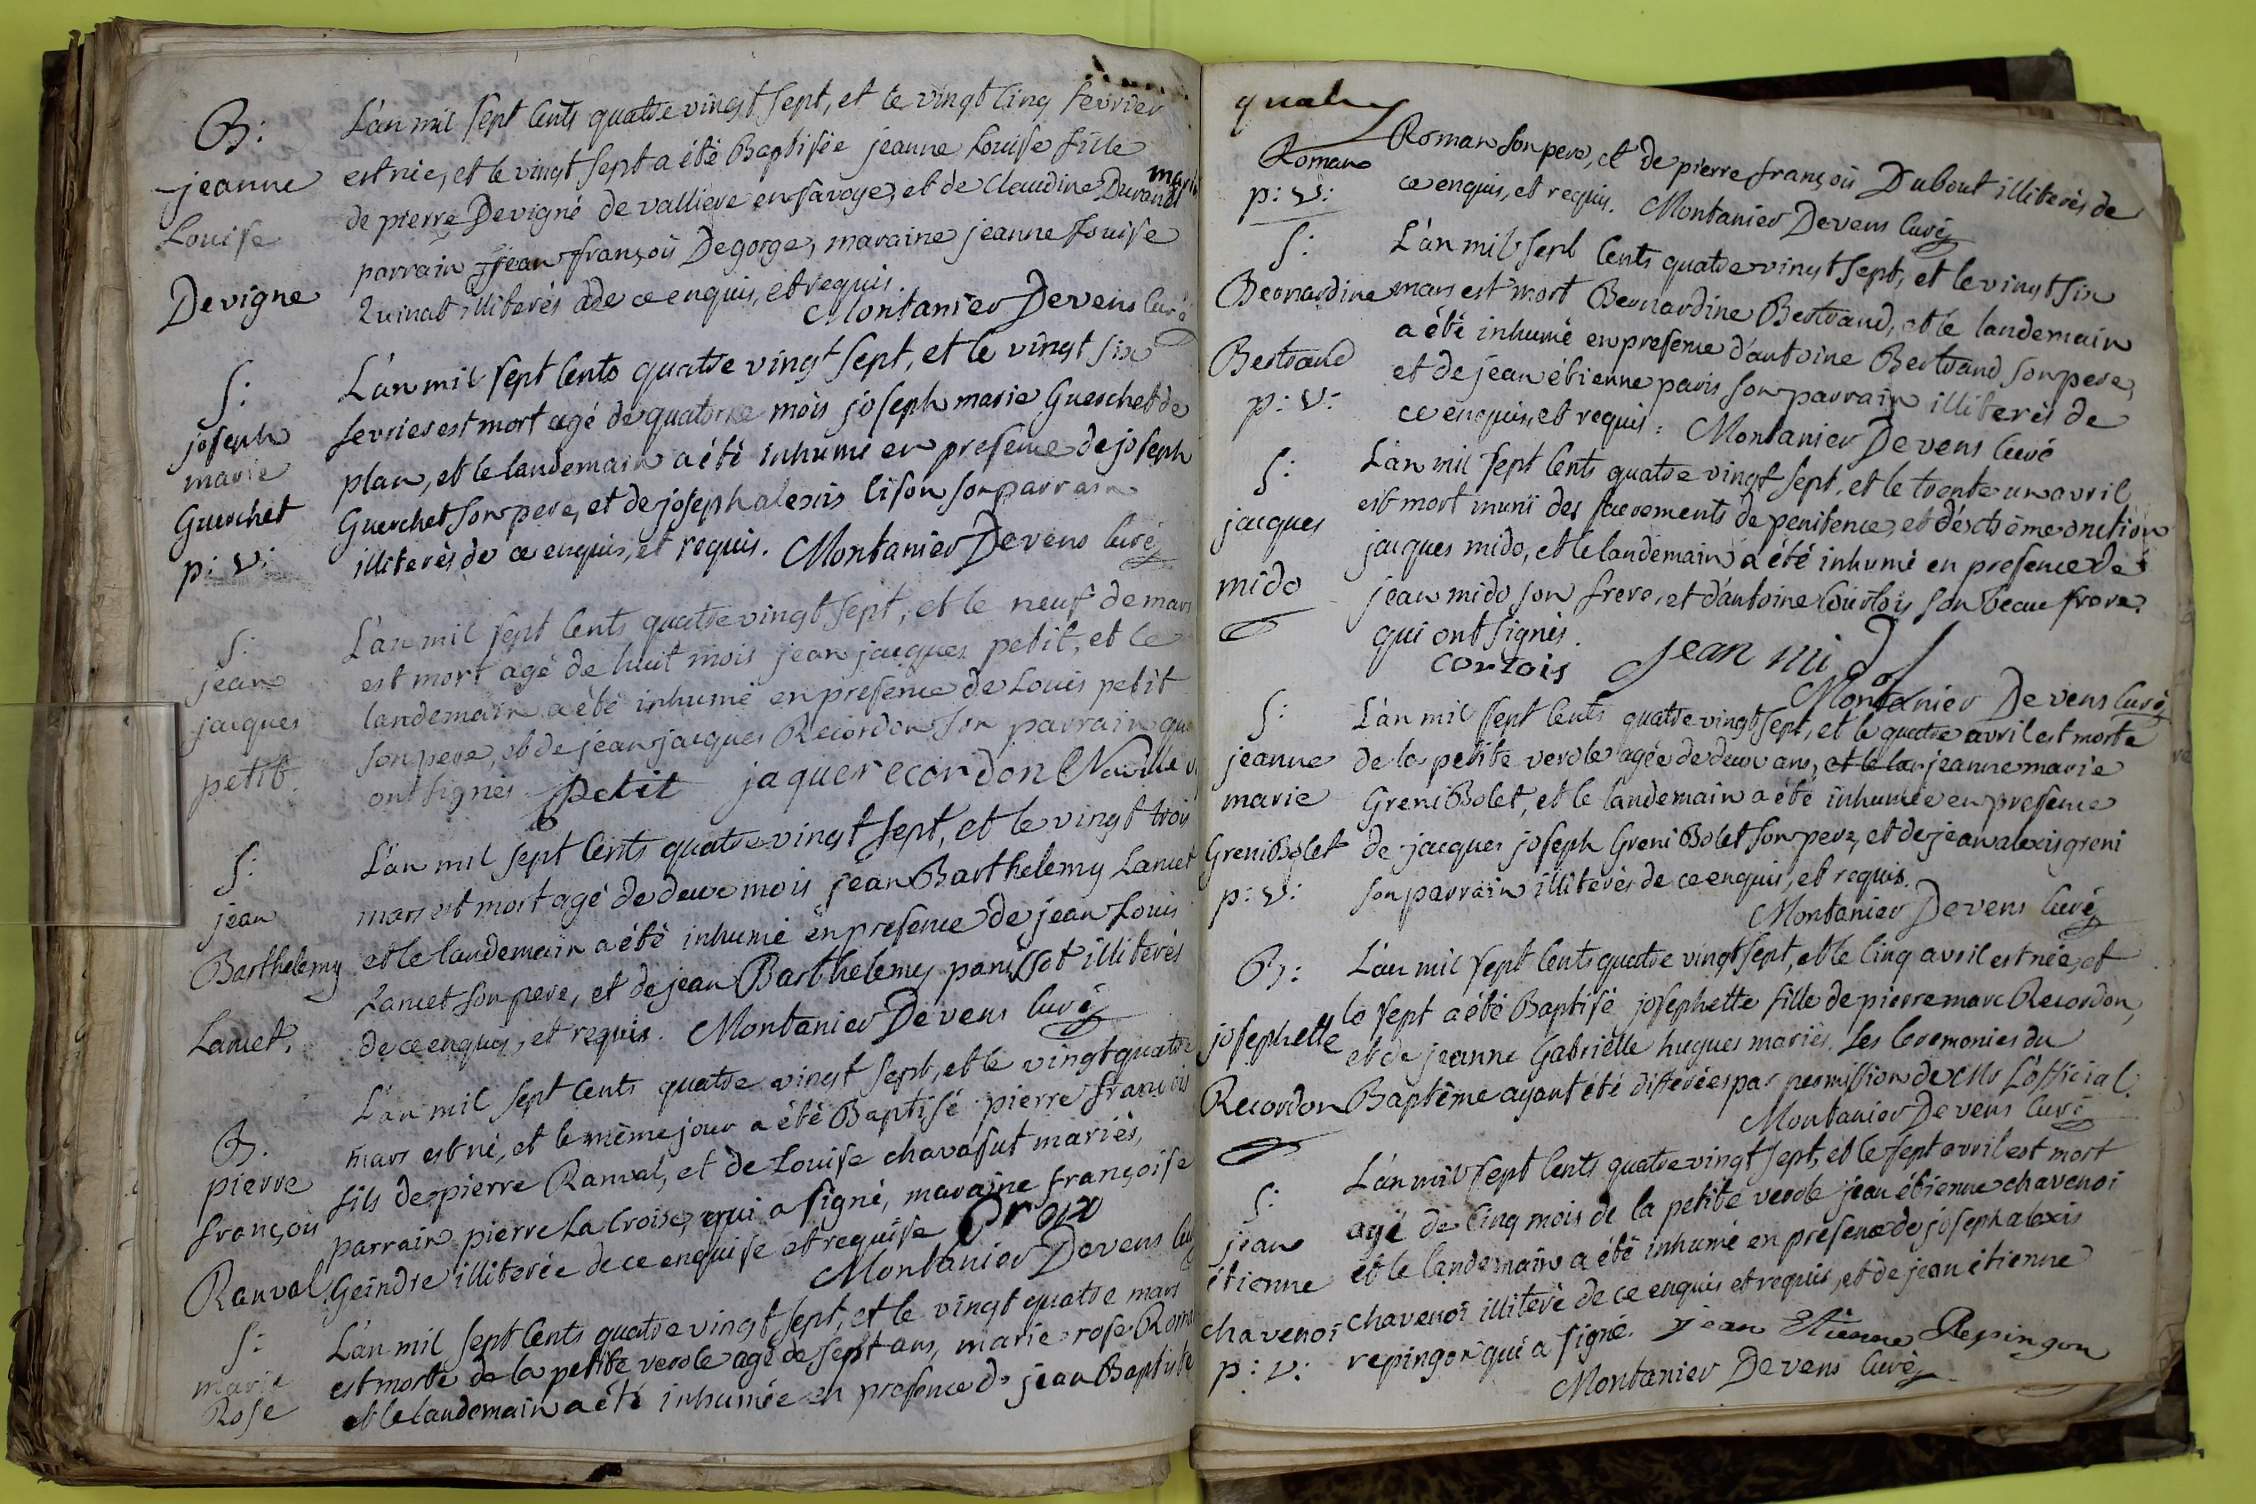 B:
jeanne
Louise
Devigne
L'an mil sept Cents quatre vingt sept, et le vingt Cinq fevrier
est née, et le vingt sept a été Baptisée jeanne Louise fille
de pierre Devigné de valliere en savoye, et de Claudine Durand mariés
parrain jean françois Degorge, maraine jeanne Louise
illiterés de ce enquis, et requis.
Montanier Devens Curé
S:
joseph
marie
Guerchet
p: v:
L'an mil sept Cents quatre vingt sept, et le vingt six
fevrier est mort agé de quatorze mois joseph marie Guerchet de
plan, et le landemain a été inhumé en presence de joseph
Guerchet son pere, et de joseph alexis lison son parrain
illiterés de ce enquis, et requis. Montanier Devens Curé
S:
jean
jacques
petit.
L'an mil sept Cents quatre vingt sept, et le neuf de mars
est mort agé de huit mois jean jacques petit, et le
landemain a été inhumé en presence de Louis petit
son pere, et de jean jacques Recordon son parrain qui
ont signés. petit jaque recordon
S:
jean
Barthelemy
Lancet.
L'an mil sept Cents quatre vingt sept, et le vingt trois
mars est mort agé de deux mois jean Barthelemy Lancet
et le landemain a été inhumé en presence de jean Louis
Lancet son pere, et de jean Barthelemy panissot illiterés
de ce enquis, et requis. Montanier Devens Curé
B.
pierre
françois
Ranval
L'an mil sept Cents quatre vingt sept, et le vingt quatre
mars est né, et le même jour a été Baptisé pierre françois
fils de pierre Ranval, et de Louise chavasut mariés,
parrain pierre La Croix, qui a signé, maraine françoise
Geindre illiterée de ce enquise et requise Croix
Montanier Devens Curé
S:
marie
Rose
L'an mil sept Cents quatre vingt sept, et le vingt quatre mars
est morte de la petite verole agé de sept ans, marie rose Roman
et le landemain a été inhumée en presence de jean Baptiste
Roman
p: v:
Roman son pere, et de pierre françois Dubout illiterés de
ce enquis, et requis. Montanier Devens Curé
S:
Bernardine
Bertrand
p: v:
L'an mil sept Cents quatre vingt sept, et le vingt six
mars est mort Bernardine Bertrand, et le landemain
a été inhumé en presence d'antoine Bertrand son pere,
et de jean étienne paris son parrain illiterés de
ce enquis, et requis: Montanier Devens Curé
S:
jacques
mido
L'an mil sept Cents quatre vingt sept, et le trente un avril
est mort muni des sacrements de penitence, et d'extrême onction
jacques mido, et le landemain a été inhumé en presence de
jean mido son frere, et d'antoine Courtois son beau frere
qui ont signés.
cortois jean mido
Montanier Devens Curé
S:
jeanne
marie
GreniBolet
p: v:
L'an mil sept Cents quatre vingt sept, et le quatre avril est morte
de la petite verole agée de deux ans, et le lan jeanne marie
GreniBolet, et le landemain a été inhumée en presence
de jacques joseph Greni Bolet son pere, et de jean alexis greni
son parrain illiterés de ce enquis, et requis.
Montanier Devens Curé
B:
josephette
Recordon
L'an mil sept Cents quatre vingt sept, et le Cinq avril est née, et
le sept a été Baptisé josephette fille de pierre marc Recordon,
et de jeanne Gabriëlle hugues mariés. Les Ceremonies du
Baptême ayant été differées par permission de Mr L'official.
Montanier Devens Curé
S:
jean
étienne
chavenoi
p: v:
L'an mil sept Cents quatre vingt sept, et le sept avril est mort
agé de Cinq mois de la petite verole jean étienne chavenoi
et le landemain a été inhumé en presence de joseph alexis
chavenoi illiteré de ce enquis et requis, et de jean étienne
repingon qui a signé. jean Etienne Repingon
Montanier Devens Curé